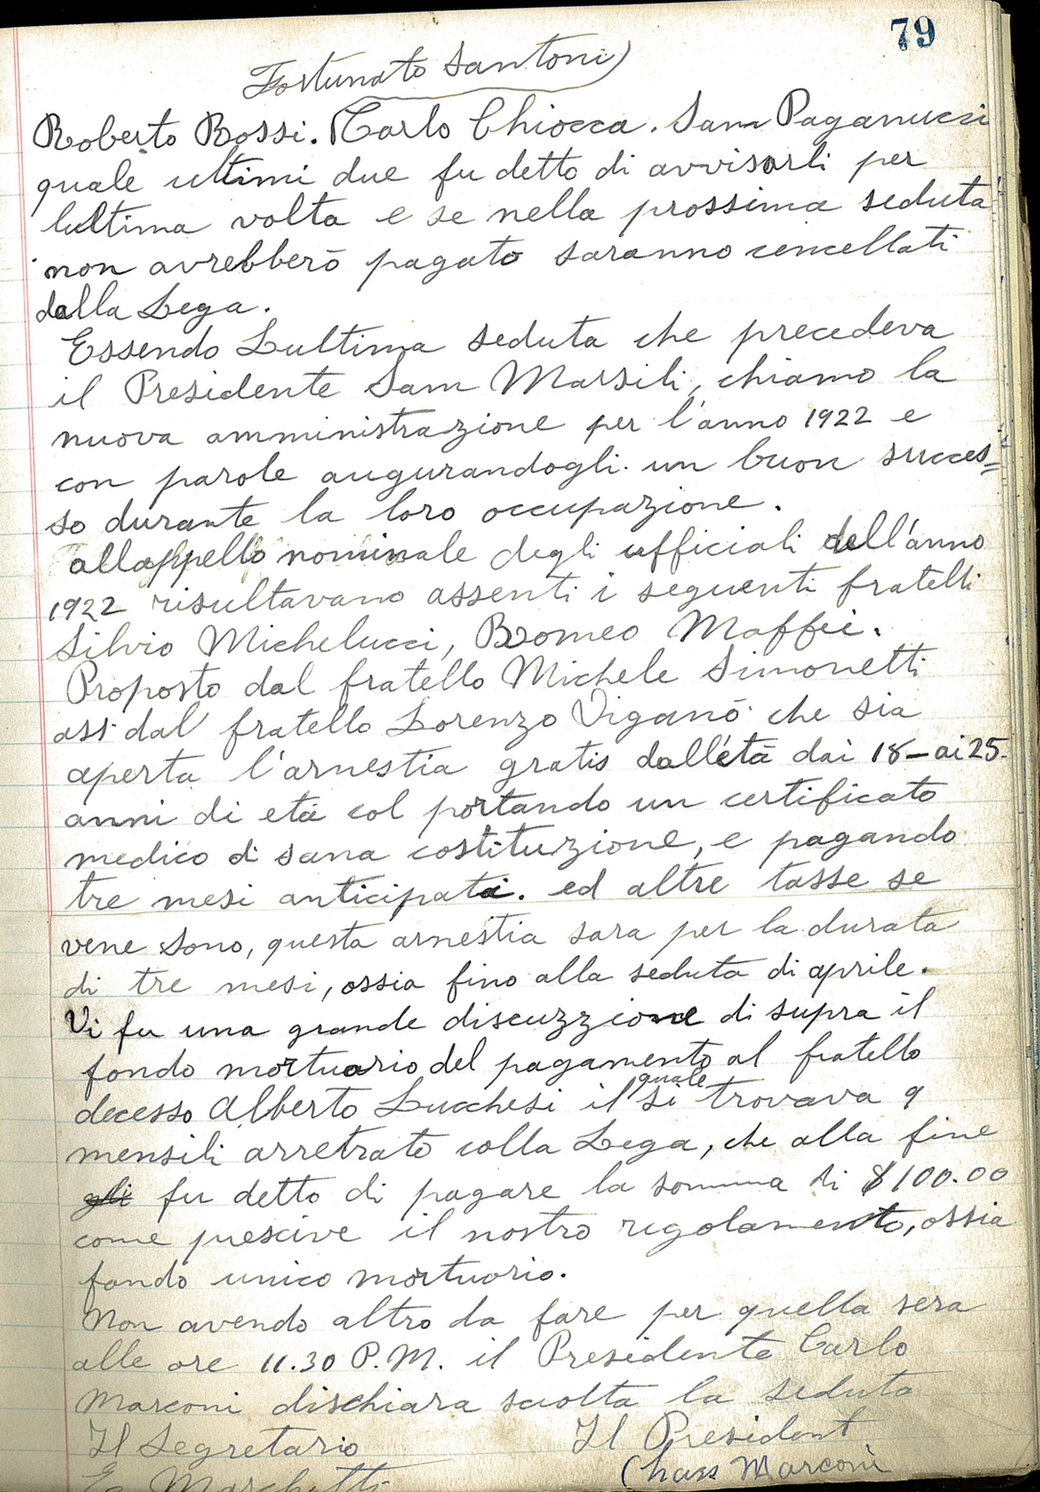 79
Fortunato Santoni)
Roberto Rossi. Carlo Chiocca. Sam Paganucci
quale ultimi due fu detto di avvisarli per
lultima volta e se nella prossima seduta
non avrebberò pagato saranno cencellati
dalla Lega.
Essendo Lultima seduta che precedeva
il Presidente Sam Marsili, chiamo la
nuova amministrazione per l'anno 1922 e
con parole augurandogli un buon succes=
so durante la loro occupazione.
allappello nominale degli ufficiali dell'anno
1922 risultavano assenti i seguenti fratelli
Silvio Michelucci, Romeo Maffei.
Proposto dal fratello Michele Simonetti
ass. dal fratello Lorenzo Viganò che sia
aperta l'arnestia gratis dall'età dai 18-ai 25.
anni di età col portando un certificato
medico di sana costituzione, e pagando
tre mesi anticipati. ed altre tasse se
vene sono, questa arnestia sara per la durata
di tre mesi, ossia fino alla seduta di aprile.
Vi fu una grande discuzzione di supra il
fondo mortuario del pagamento al fratello
decesso Alberto Lucchesi il quale si trovava 9
mensili arretrato colla Lega, che alla fine
gli fu detto di pagare la somma di $100.00
come prescive il nostro regolamento, ossia
fondo unico mortuario.
Non avendo altro da fare per quella sera
alle ore 11.30 P.M. il Presidente Carlo
Marconi dischiara sciolta la seduta
Il Segretario Il President
Marchetti Chass Marconi